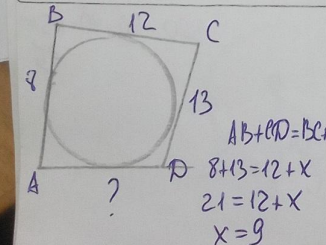 B
12
C
8
13
A
D
?
AB+CD=BC+
8+13=12+x
21=12+x
x=9